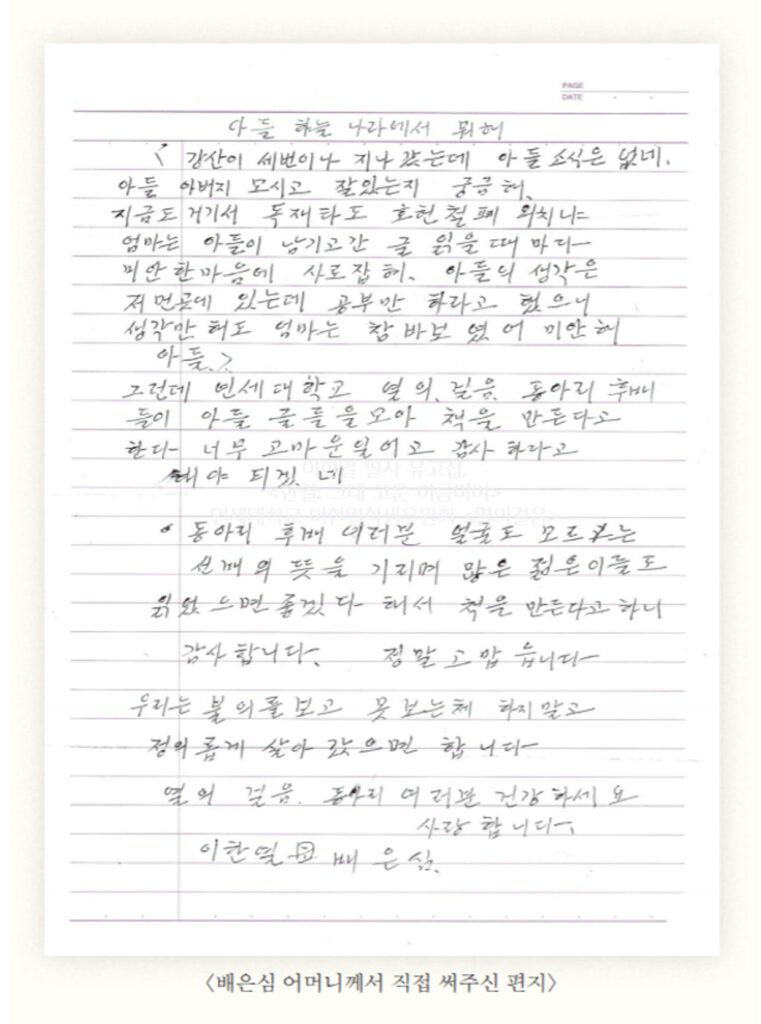 PAGE
DATE
아들 하늘 나라에서 뭐허
< 강산이 세번이나 지나 갔는데 아들 소식은 없네.
아들 아버지 모시고 잘있는지 궁금해.
지금도 거기서 독재타도 호헌철폐 외치나
엄마는 아들이 남기고간 글 읽을때 마다
미안한마음에 사로잡혀. 아들의 생각은
저먼곳에 있는데 공부만 하라고 했으니
생각만해도 엄마는 참 바보 였어 미안허
아들.>
그런데 연세대학교 열의.걸음. 동아리 후배
들이 아들 글들을모아 책을 만든다고
한다 너무 고마운일이고 감사 하라고
해야 되겠네
• 동아리 후배 여러분 얼굴도 모르는
선배의 뜻을 기리며 많은 젊은이들도
읽었으면좋겠다 해서 책을 만든다고하니
감사합니다. 정말고맙읍니다
우리는 불의를보고 못보는체 하지말고
정의롭게 살아 갔으면 합니다
열의 걸음. 동아리 여러분 건강하세요
사랑합니다.
이한열 母 배은심.
〈배은심 어머니께서 직접 써주신 편지〉